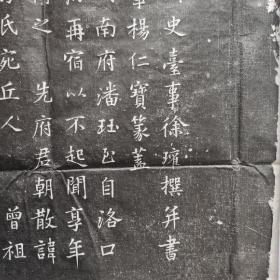 史臺事徐瓘撰并書
事楊仁寶篆蓋
南府潘珏㠯自洛口
再宿以不起聞享年
之 先府君朝散諱
氏宛丘人 曾祖